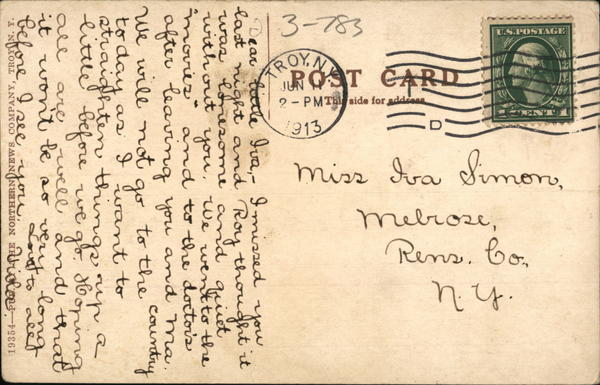 3-783
U.S. POSTAGE
1 CENT 1
TROY, N.Y.
JUN 11
2-PM
1913
D
POST CARD
This side for address
Miss Iva Simon,
Melrose,
Rens. Co.,
N.Y.
Dear little Iva,- I missed you
last night and Roy thought it
was lonesome and quiet
without you. We went to the
"movies" and to the doctor's
after leaving you and Ma.
We will not go to the country
today as I want to
straighten things up a
little before we go. Hoping
all are well and that
it won't be so very long
before I see you. Lots
19354 THE NORTHERN NEWS COMPANY, TROY, N.Y.